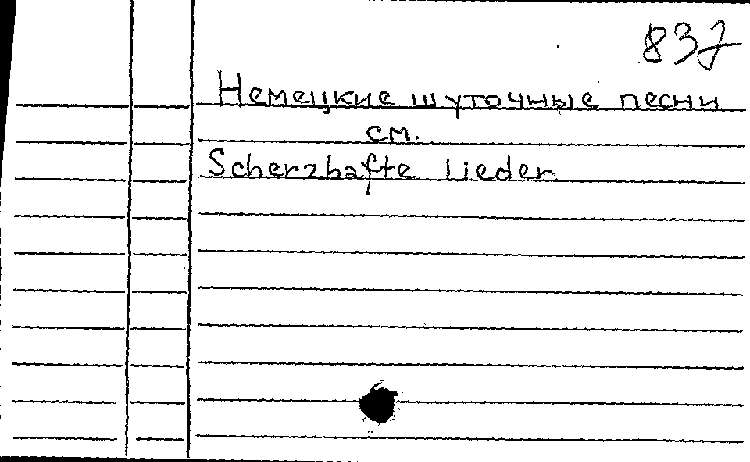 837
Немецкие шуточные песни
см.
Scherzhafte Lieder